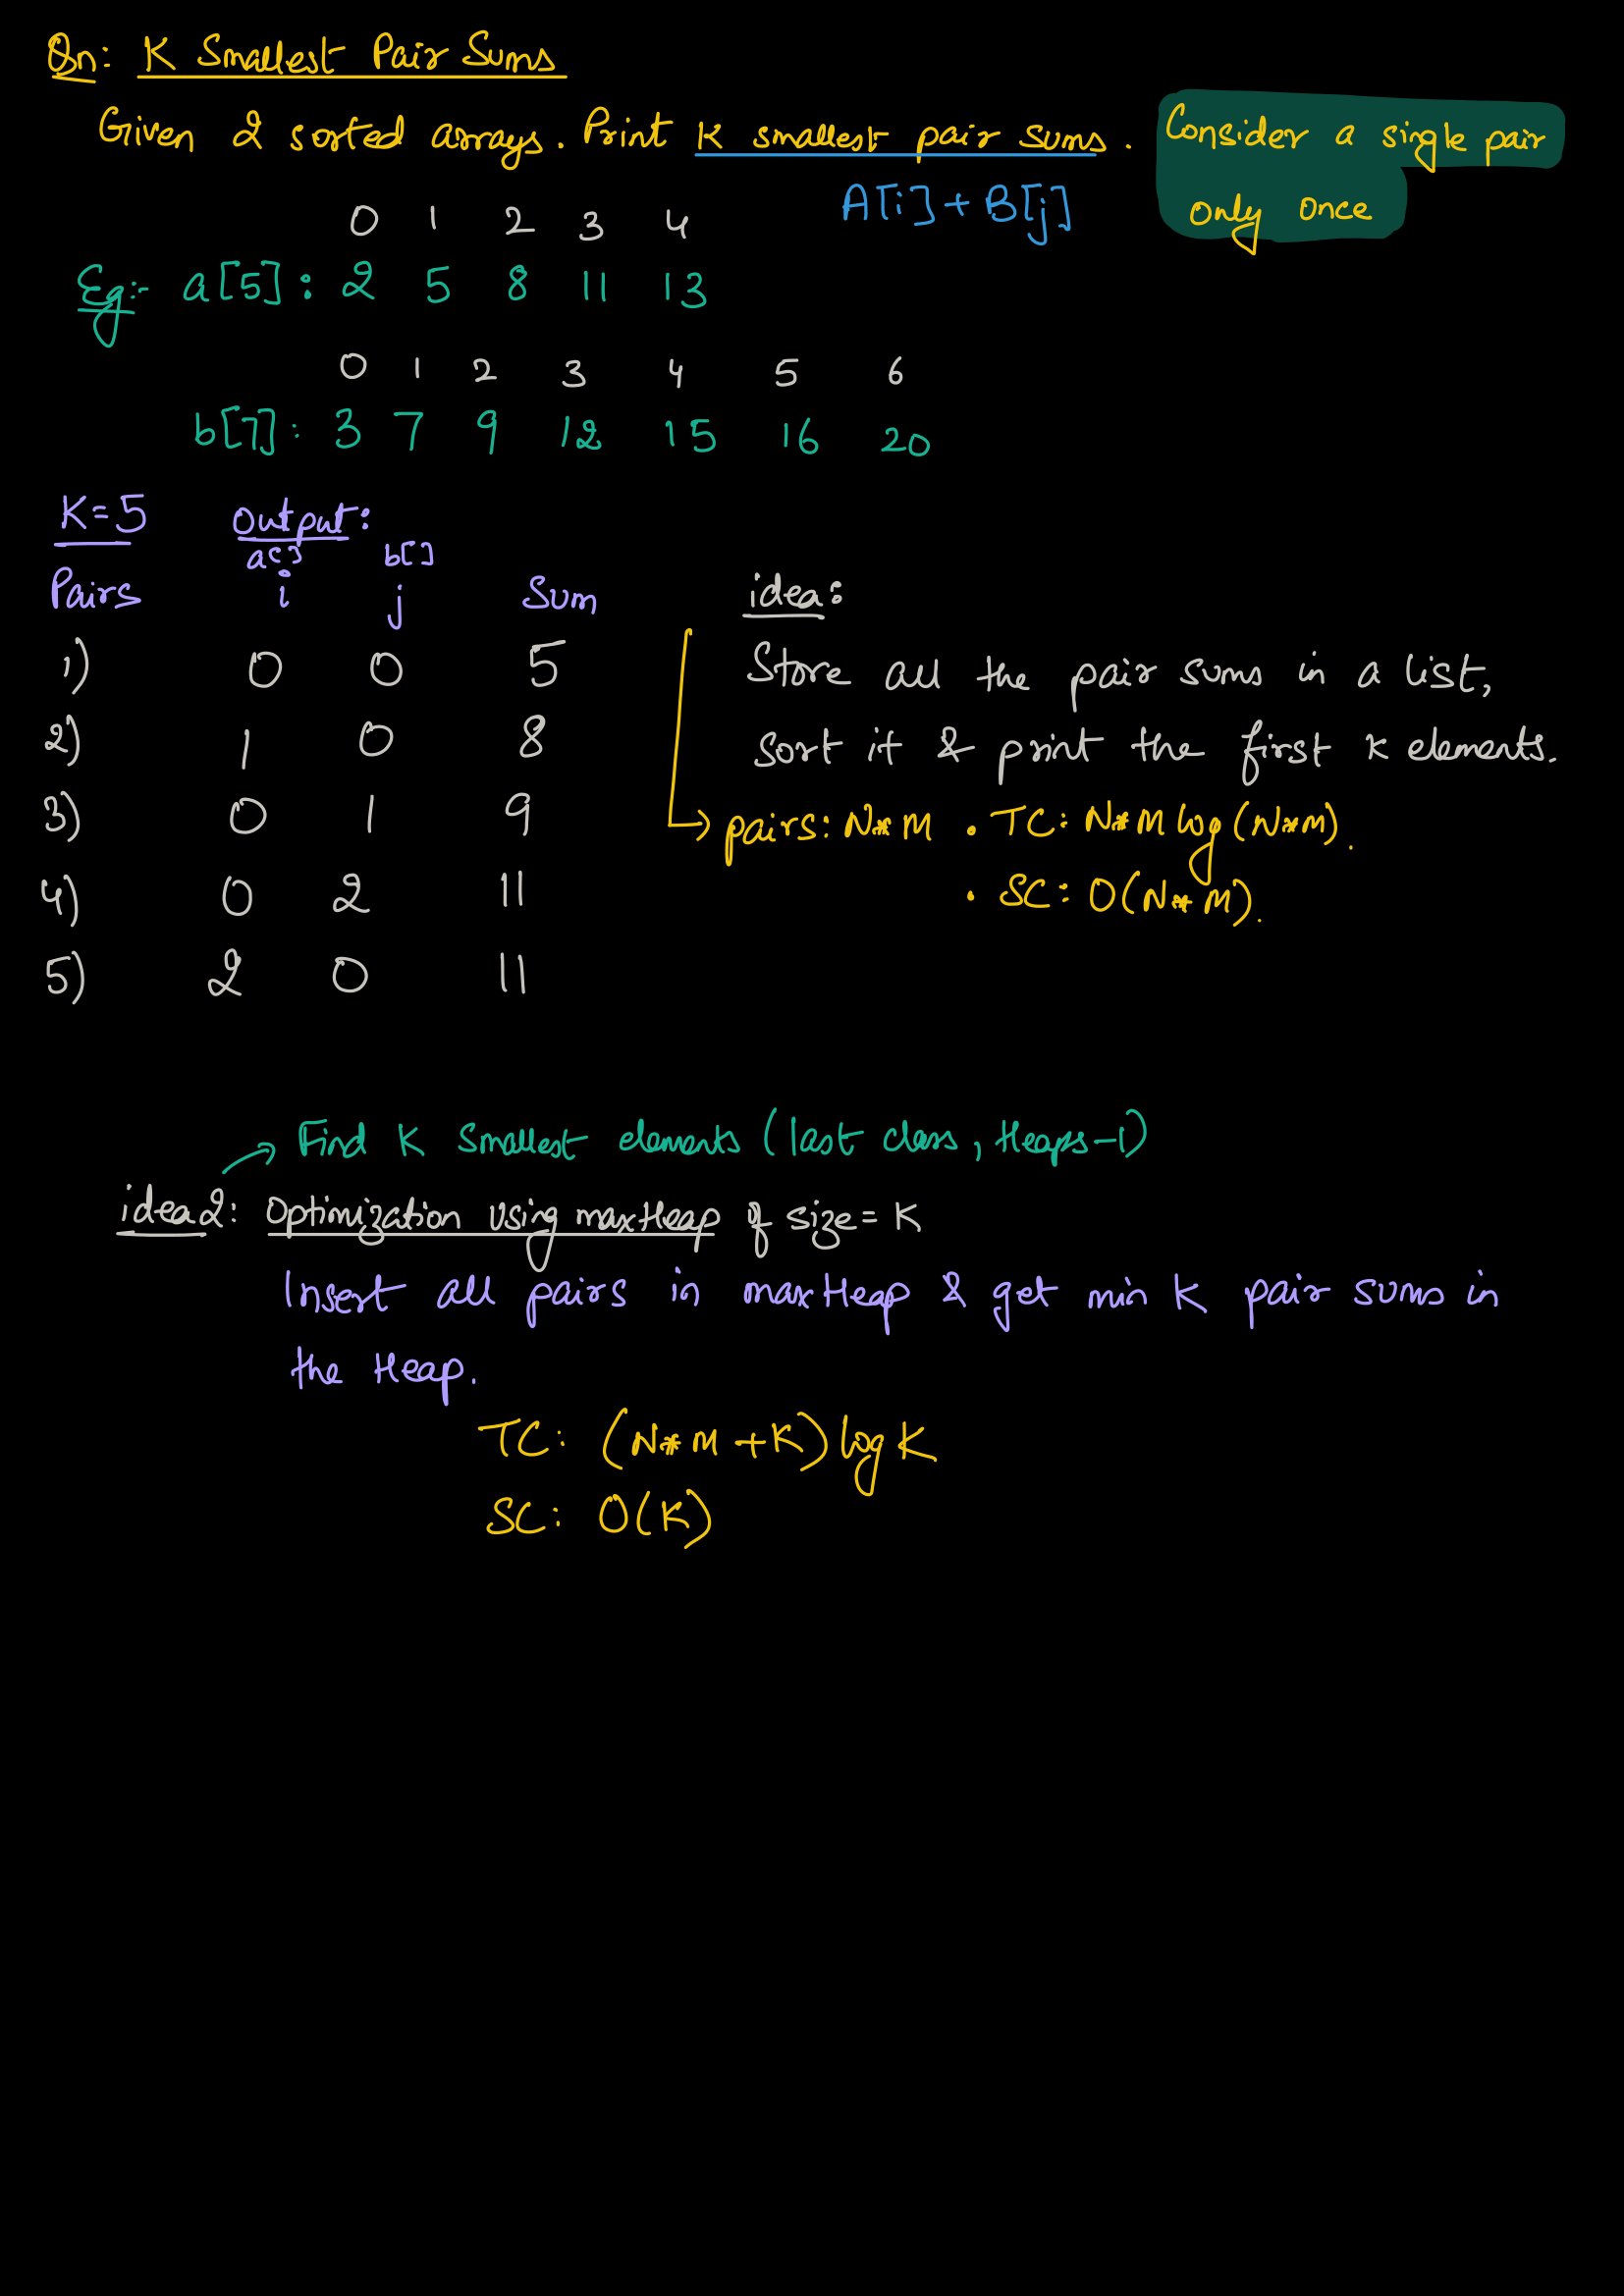 Qn: K Smallest Pair Sums
Given 2 sorted arrays. Print K smallest pair sums. Consider a single pair
only once
A[i] + B[j]
0 1 2 3 4
Eg:- a[5] : 2 5 8 11 13
0 1 2 3 4 5 6
b[7] : 3 7 9 12 15 16 20
K=5 Output:
a[] b[]
Pairs i j Sum
1) 0 0 5
2) 1 0 8
3) 0 1 9
4) 0 2 11
5) 2 0 11
idea:
Store all the pair sums in a list,
sort it & print the first k elements.
→ pairs: N*M • TC: N*M log(N*M).
• SC: O(N*M).
→ Find K Smallest elements (last class, Heaps-1)
idea2: Optimization using maxHeap of size = K
Insert all pairs in maxHeap & get min K pair sums in
the Heap.
TC: (N*M + K) log K
SC: O(K)